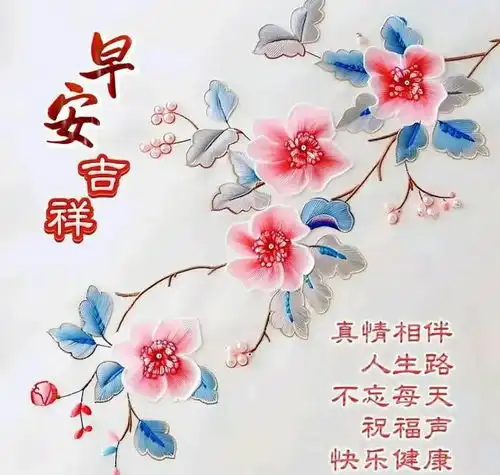 早安
吉祥
真情相伴
人生路
不忘每天
祝福声
快乐健康